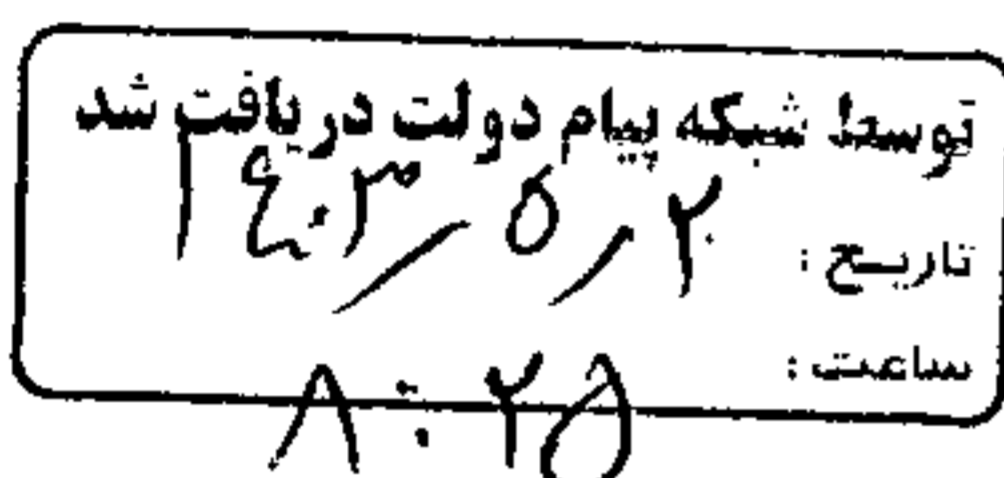 توسط شبکه پیام دولت دریافت شد
تاریخ : ۱۴۰۳/۵/۲
ساعت : ۸:۲۵